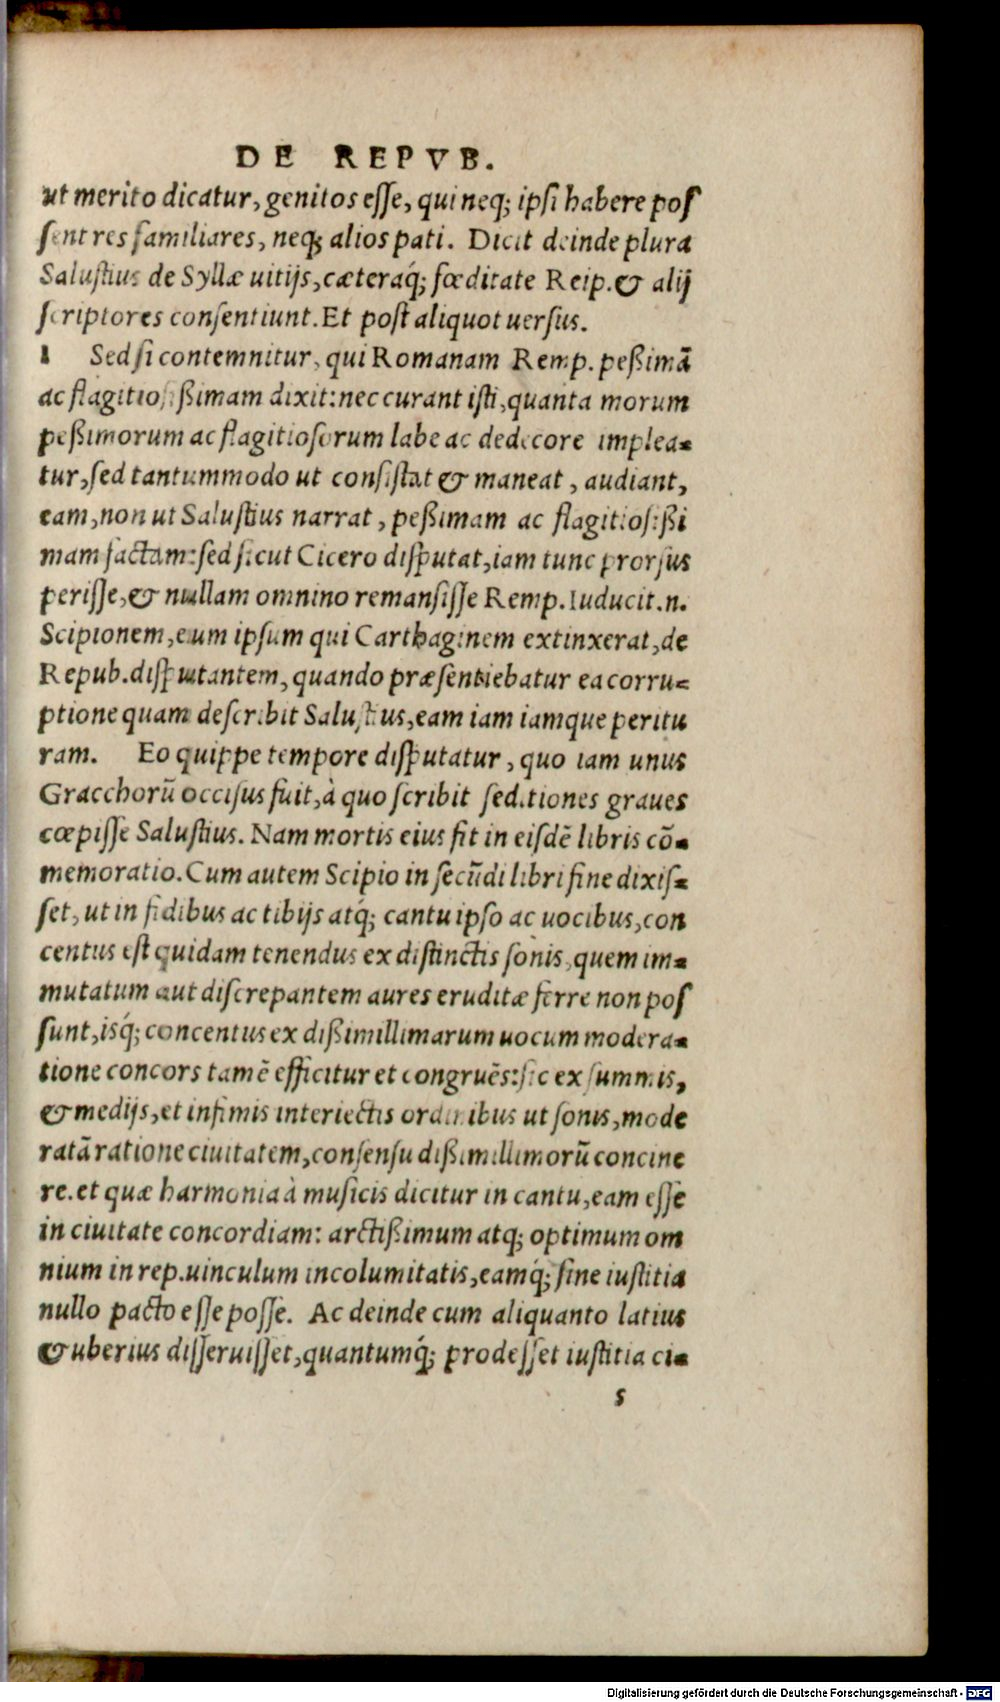 DE REPVB.
ut merito dicatur, genitos esse, qui neq; ipsi habere pos
sent res familiares, neq; alios pati. Dicit deinde plura
Salustius de Syllæ uitijs, cæteraq́; fœditate Reip. & alij
scriptores consentiunt. Et post aliquot uersus.
1 Sed si contemnitur, qui Romanam Remp. peßimā
ac flagitiosißimam dixit: nec curant isti, quanta morum
peßimorum ac flagitiosorum labe ac dedecore implea-
tur, sed tantummodo ut consistat & maneat, audiant,
eam, non ut Salustius narrat, peßimam ac flagitiosißi
mam factam: sed sicut Cicero disputat, iam tunc prorsus
perisse, & nullam omnino remansisse Remp. Iuducit .n.
Scipionem, eum ipsum qui Carthaginem extinxerat, de
Repub. disputantem, quando præsentiebatur ea corru-
ptione quam describit Salustius, eam iam iamque peritu
ram. Eo quippe tempore disputatur, quo iam unus
Gracchorū occisus fuit, à quo scribit seditiones graues
cœpisse Salustius. Nam mortis eius fit in eisdē libris cō-
memoratio. Cum autem Scipio in secūdi libri fine dixis-
set, ut in fidibus ac tibijs atq́; cantu ipso ac uocibus, con
centus est quidam tenendus ex distinctis sonis, quem im-
mutatum aut discrepantem aures eruditæ ferre non pos
sunt, isq́; concentus ex dißimillimarum uocum modera-
tione concors tamē efficitur et congruēs: sic ex summis,
& medijs, et infimis interiectis ordinibus ut sonis, mode
ratā ratione ciuitatem, consensu dißimillimorū concine
re. et quæ harmonia à musicis dicitur in cantu, eam esse
in ciuitate concordiam: arctißimum atq; optimum om
nium in rep. uinculum incolumitatis, eamq́; sine iustitia
nullo pacto esse posse. Ac deinde cum aliquanto latius
& uberius disseruisset, quantumq́; prodesset iustitia ci-
s
Digitalisierung gefördert durch die Deutsche Forschungsgemeinschaft - DFG